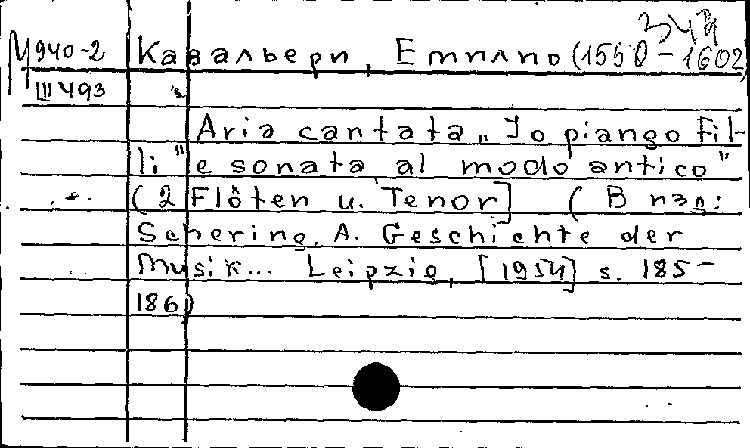 М 940-2 Кавальери, Емилио (1550-1602)
III 493
Aria cantata „Io piango Fil-
li" e sonata „al modo antico"
(2 Flöten u. Tenor] (В изд:
Schering, A. Geschichte der
Musik... Leipzig, [1954] s. 185-
186)